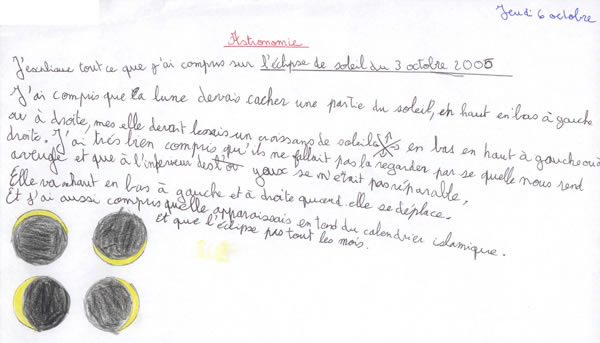 Jeudi 6 octobre
Astronomie
J'explique tout ce que j'ai compris sur l'éclipse de soleil du 3 octobre 2005
J'ai compris que la lune devais cacher une partie du soleil, en haut en bas à gauche
ou à droite, mes elle devait laissais un croissans de soleil en bas en haut à gauche ou à
droite. J'ai très bien compris qu'ils ne fallait pas la regarder par se quelle nous rend
aveugle et que à l'inferieur des yeux se n'était pas réparable,
Elle va haut en bas à gauche et à droite quand elle se déplace.
Et j'ai aussi compris qu'elle apparaissais en fond du calendrier islamique.
et que l'éclipse pas tout les mois.